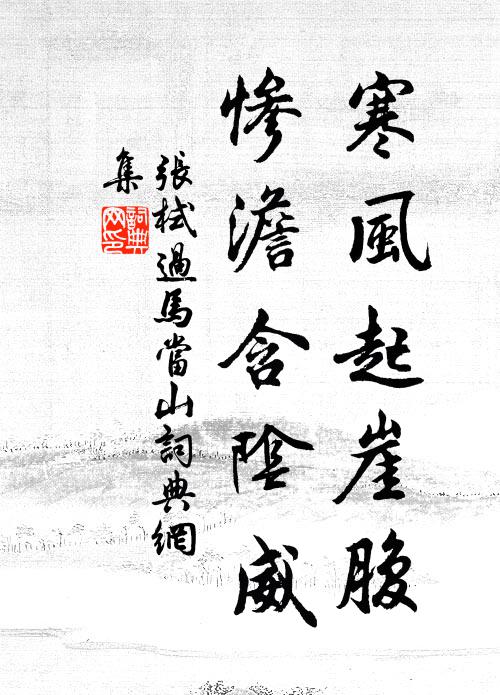 寒風起崖腹
慘澹含陰威
張栻過馬當山詞典網
集
詞典
网印